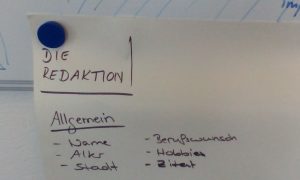 DIE
REDAKTION
Allgemein
- Name - Berufswunsch
- Alter - Hobbies
- Stadt - Zitat